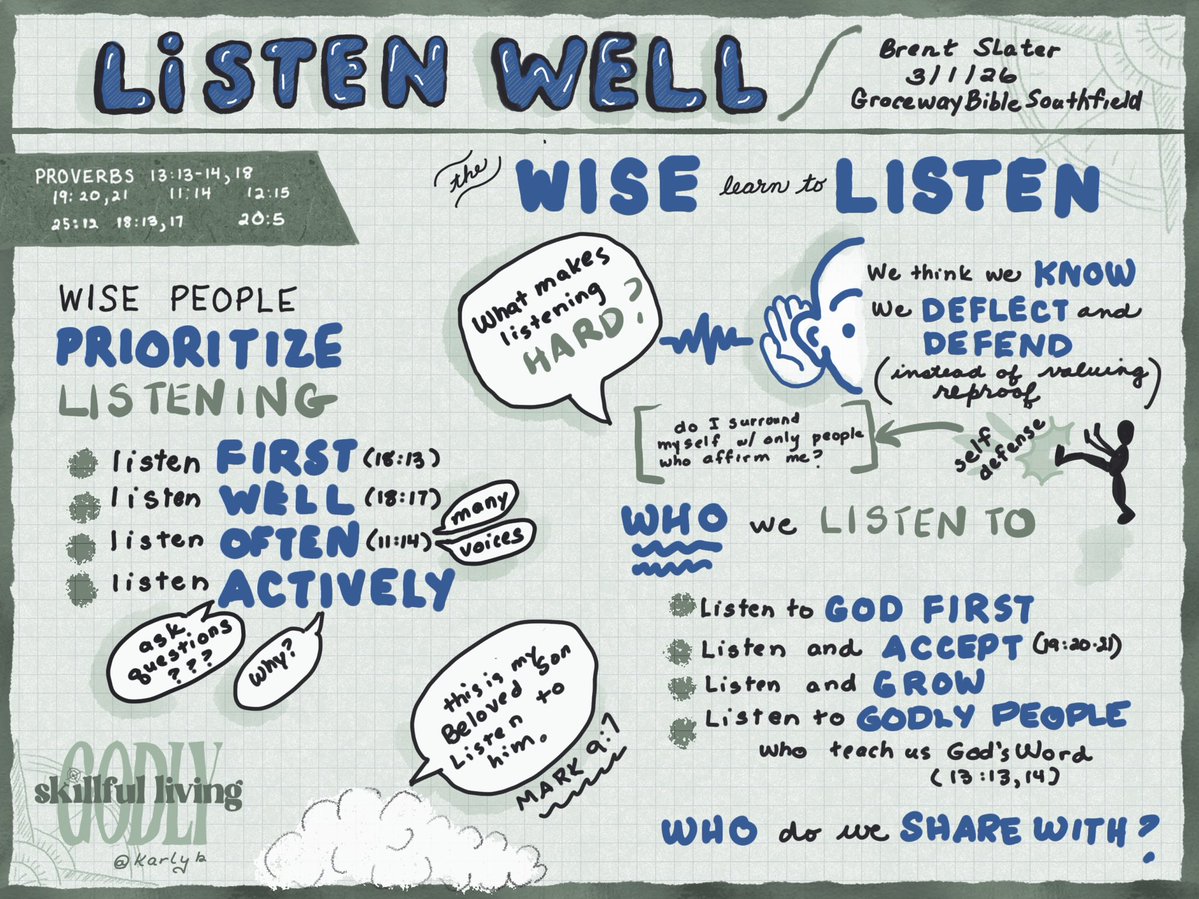 LiSTEN WELL
Brent Slater
3/1/26
GracewayBible Southfield
PROVERBS 13:13-14, 18
19:20,21 11:14 12:15
25:12 18:13,17 20:5
the WISE learn to LISTEN
WISE PEOPLE
PRIORITIZE
LISTENING
listen FIRST (18:13)
listen WELL (18:17)
listen OFTEN (11:14)
many
voices
listen ACTIVELY
ask
questions
???
Why?
What makes
listening
HARD?
We think we KNOW
We DEFLECT and
DEFEND
(instead of valuing
reproof)
do I surround
myself w/ only people
who affirm me?
self
defense
WHO we LISTEN TO
Listen to GOD FIRST
Listen and ACCEPT (19:20-21)
Listen and GROW
Listen to GODLY PEOPLE
who teach us God's Word
(13:13,14)
WHO do we SHARE WITH?
this is my
Beloved Son
Listen to
him.
MARK 9:7
GODLY
skillful living
GODLY
@karlyb